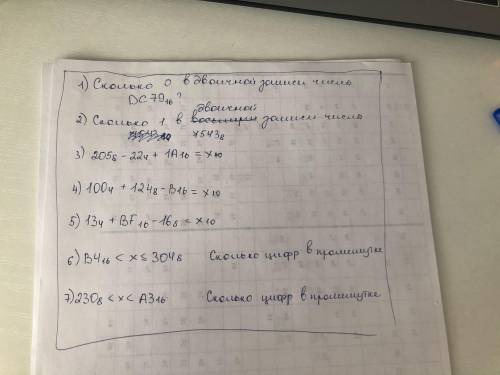 1) Сколько 0 в двоичной записи число
DC79₁₆?
2) Сколько 1 в двоичной записи число
7543₈
3) 205₈ - 22₄ + 1A₁₆ = x₁₀
4) 100₄ + 124₈ - B₁₆ = x₁₀
5) 13₄ + BF₁₆ - 16₈ = x₁₀
6) B4₁₆ < x ≤ 304₈ Сколько цифр в промежутке
7) 230₈ < x < A3₁₆ Сколько цифр в промежутке